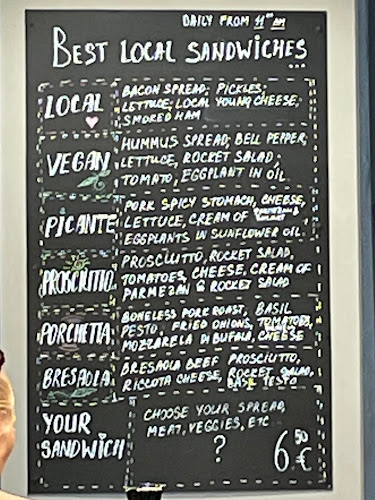 DAILY FROM 11⁰⁰ AM
BEST LOCAL SANDWICHES...
LOCAL
BACON SPREAD, PICKLES,
LETTUCE, LOCAL YOUNG CHEESE,
SMOKED HAM
VEGAN
HUMMUS SPREAD, BELL PEPPER,
LETTUCE, ROCKET SALAD,
TOMATO, EGGPLANT IN OIL
PICANTE
PORK SPICY STOMACH, CHEESE,
LETTUCE, CREAM OF
EGGPLANTS IN SUNFLOWER OIL
PROSCIUTTO
PROSCIUTTO, ROCKET SALAD,
TOMATOES, CHEESE, CREAM OF
PARMEZAN & ROCKET SALAD
PORCHETTA
BONELESS PORK ROAST, BASIL
PESTO, FRIED ONIONS, TOMATOES,
MOZZARELA DI BUFALA, CHEESE
BRESAOLA
BRESAOLA BEEF PROSCIUTTO,
RICCOTA CHEESE, ROCKET SALAD,
BASIL PESTO
YOUR
SANDWICH
CHOOSE YOUR SPREAD,
MEAT, VEGGIES, ETC
?
6⁵⁰ €